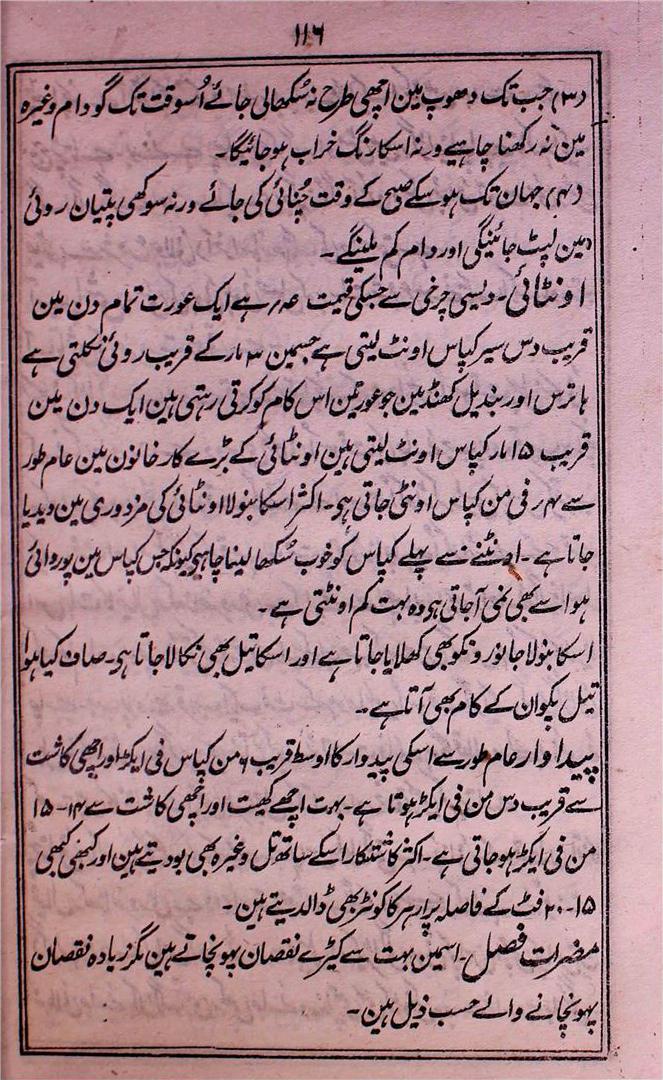 ۱۱۶
(۳) جب تک دھوپ مین اچھی طرح نہ سُکھالی جائے اُسوقت تک گودام وغیرہ
مین نہ رکھنا چاہیے ورنہ اسکا رنگ خراب ہو جائیگا۔
(۴) جہان تک ہو سکے صبح کے وقت چُنائی کی جائے ورنہ سوکھی پتیان روئی
مین لپٹ جائینگی اور دام کم ملینگے۔
اونٹائی۔ دیسی چرخی سے جسکی قیمت ہے ایک عورت تمام دن مین
قریب دس سیر کپاس اونٹ لیتی ہے جسمین ۳ مار کے قریب روئی نکلتی ہے
ہاترس اور بندیل کھنڈ مین جو عورتین اس کام کو کرتی رہتی ہین ایک دن مین
قریب ۱۵ مار کپاس اونٹ لیتی ہین اونٹائی کے بڑے کارخانون مین عام طور
سے ۴ر فی من کپاس اونٹی جاتی ہو۔ اکثر اسکا بنولا اونٹائی کی مزدوری مین دیدیا
جاتا ہے۔ اونٹنے سے پہلے کپاس کو خوب سُکھا لینا چاہیے کیونکہ جس کپاس مین پوروائی
ہوا سے بھی نمی آجاتی ہو وہ بہت کم اونٹتی ہے۔
اسکا بنولا جانورونکو بھی کھلایا جاتا ہے اور اسکا تیل بھی نکالا جاتا ہو۔ صاف کیا ہوا
تیل پکوان کے کام بھی آتا ہے۔
پیداوار عام طور سے اسکی پیدوار کا اوسط قریب ۶ من کپاس فی ایکڑ اور اچھی کاشت
سے قریب دس من فی ایکڑ ہوتا ہے۔ بہت اچھے کھیت اور اچھی کاشت سے ۱۴-۱۵
من فی ایکڑ ہو جاتی ہے۔ اکثر کاشتکار اسکے ساتھ تل وغیرہ بھی بو دیتے ہین اور کبھی کبھی
۱۵-۲۰ فٹ کے فاصلہ پر ارہر کا کونٹر بھی ڈالدیتے ہین۔
مضرات فصل۔ اسمین بہت سے کیڑے نقصان پہونچاتے ہین مگر زیادہ نقصان
پہونچانے والے حسب ذیل ہین۔